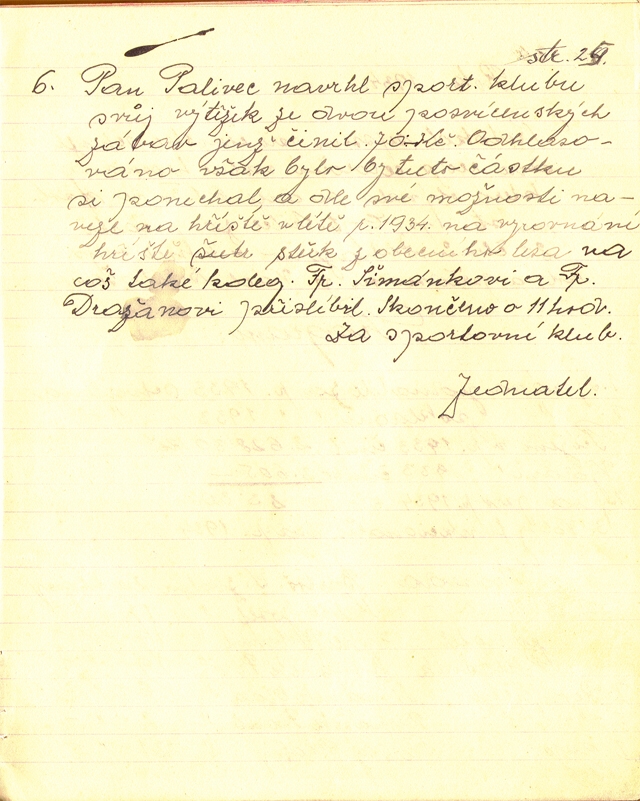 str. 25.
6. Pan Palivec navrhl sport. klubu
svůj výtižek ze dvou posvícenských
zábav jenž činil 70 Kč. Odhlaso-
váno však bylo by tuto částku
si ponechal a dle své možnosti na-
veze na hřiště v létě r. 1934. na vyrovnání
hřiště šutr stěk z obecního lesa na
což také koleg. Fr. Šimánkovi a Fr.
Dražanovi přislíbil. Skončeno o 11 hod.
Za sportovní klub.
Jednatel.